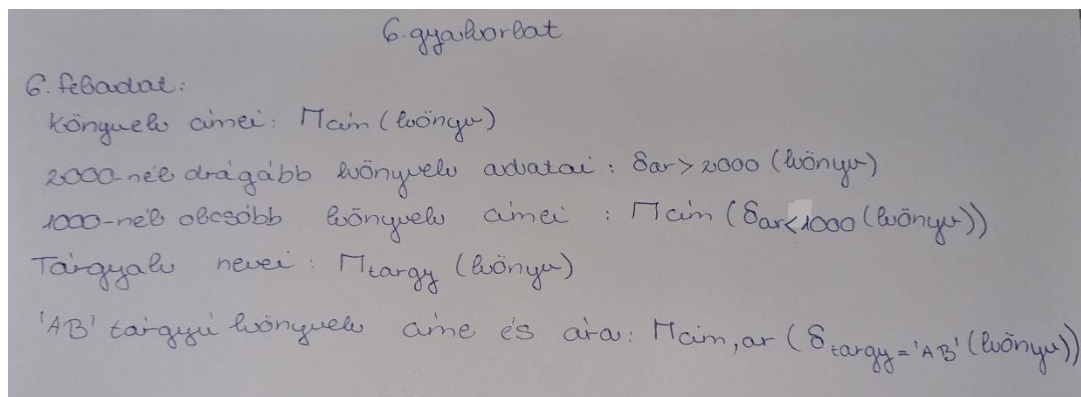 6. gyakorlat
6. feladat:
Könyvek címei: Πcím (könyv)
2000-nél drágább könyvek adatai: δar > 2000 (könyv)
1000-nél olcsóbb könyvek címei : Πcím (δar<1000 (könyv))
Tárgyak nevei : Πtargy (könyv)
'AB' tárgyú könyvek címe és ára: Πcím, ar (δtargy = 'AB' (könyv))